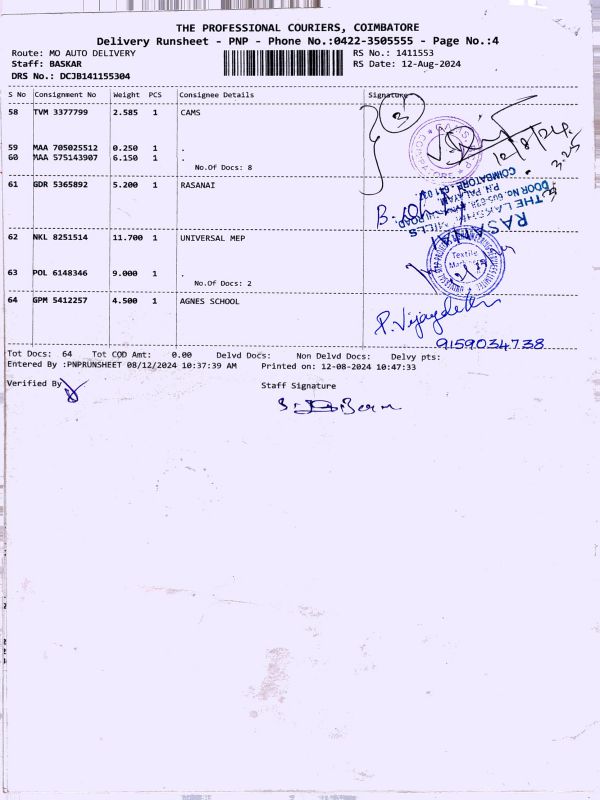 THE PROFESSIONAL COURIERS, COIMBATORE
Delivery Runsheet - PNP - Phone No.:0422-3505555 - Page No.:4
Route: MO AUTO DELIVERY RS No.: 1411553
Staff: BASKAR RS Date: 12-Aug-2024
DRS No.: DCJB141155304
S No Consignment No Weight PCS Consignee Details Signature
58 TVM 3377799 2.585 1 CAMS
3
12/8/24
3.25
59 MAA 705025512 0.250 1 .
60 MAA 575143907 6.150 1 .
No.Of Docs: 8
61 GDR 5365892 5.200 1 RASANAI
COIMBATORE - 641 037.
P.N. PALAYAM,
RASANAI
62 NKL 8251514 11.700 1 UNIVERSAL MEP
Textile
63 POL 6148346 9.000 1 .
No.Of Docs: 2
64 GPM 5412257 4.500 1 AGNES SCHOOL
9159034738
Tot Docs: 64 Tot COD Amt: 0.00 Delvd Docs: Non Delvd Docs: Delvy pts:
Entered By :PNPRUNSHEET 08/12/2024 10:37:39 AM Printed on: 12-08-2024 10:47:33
Verified By Staff Signature